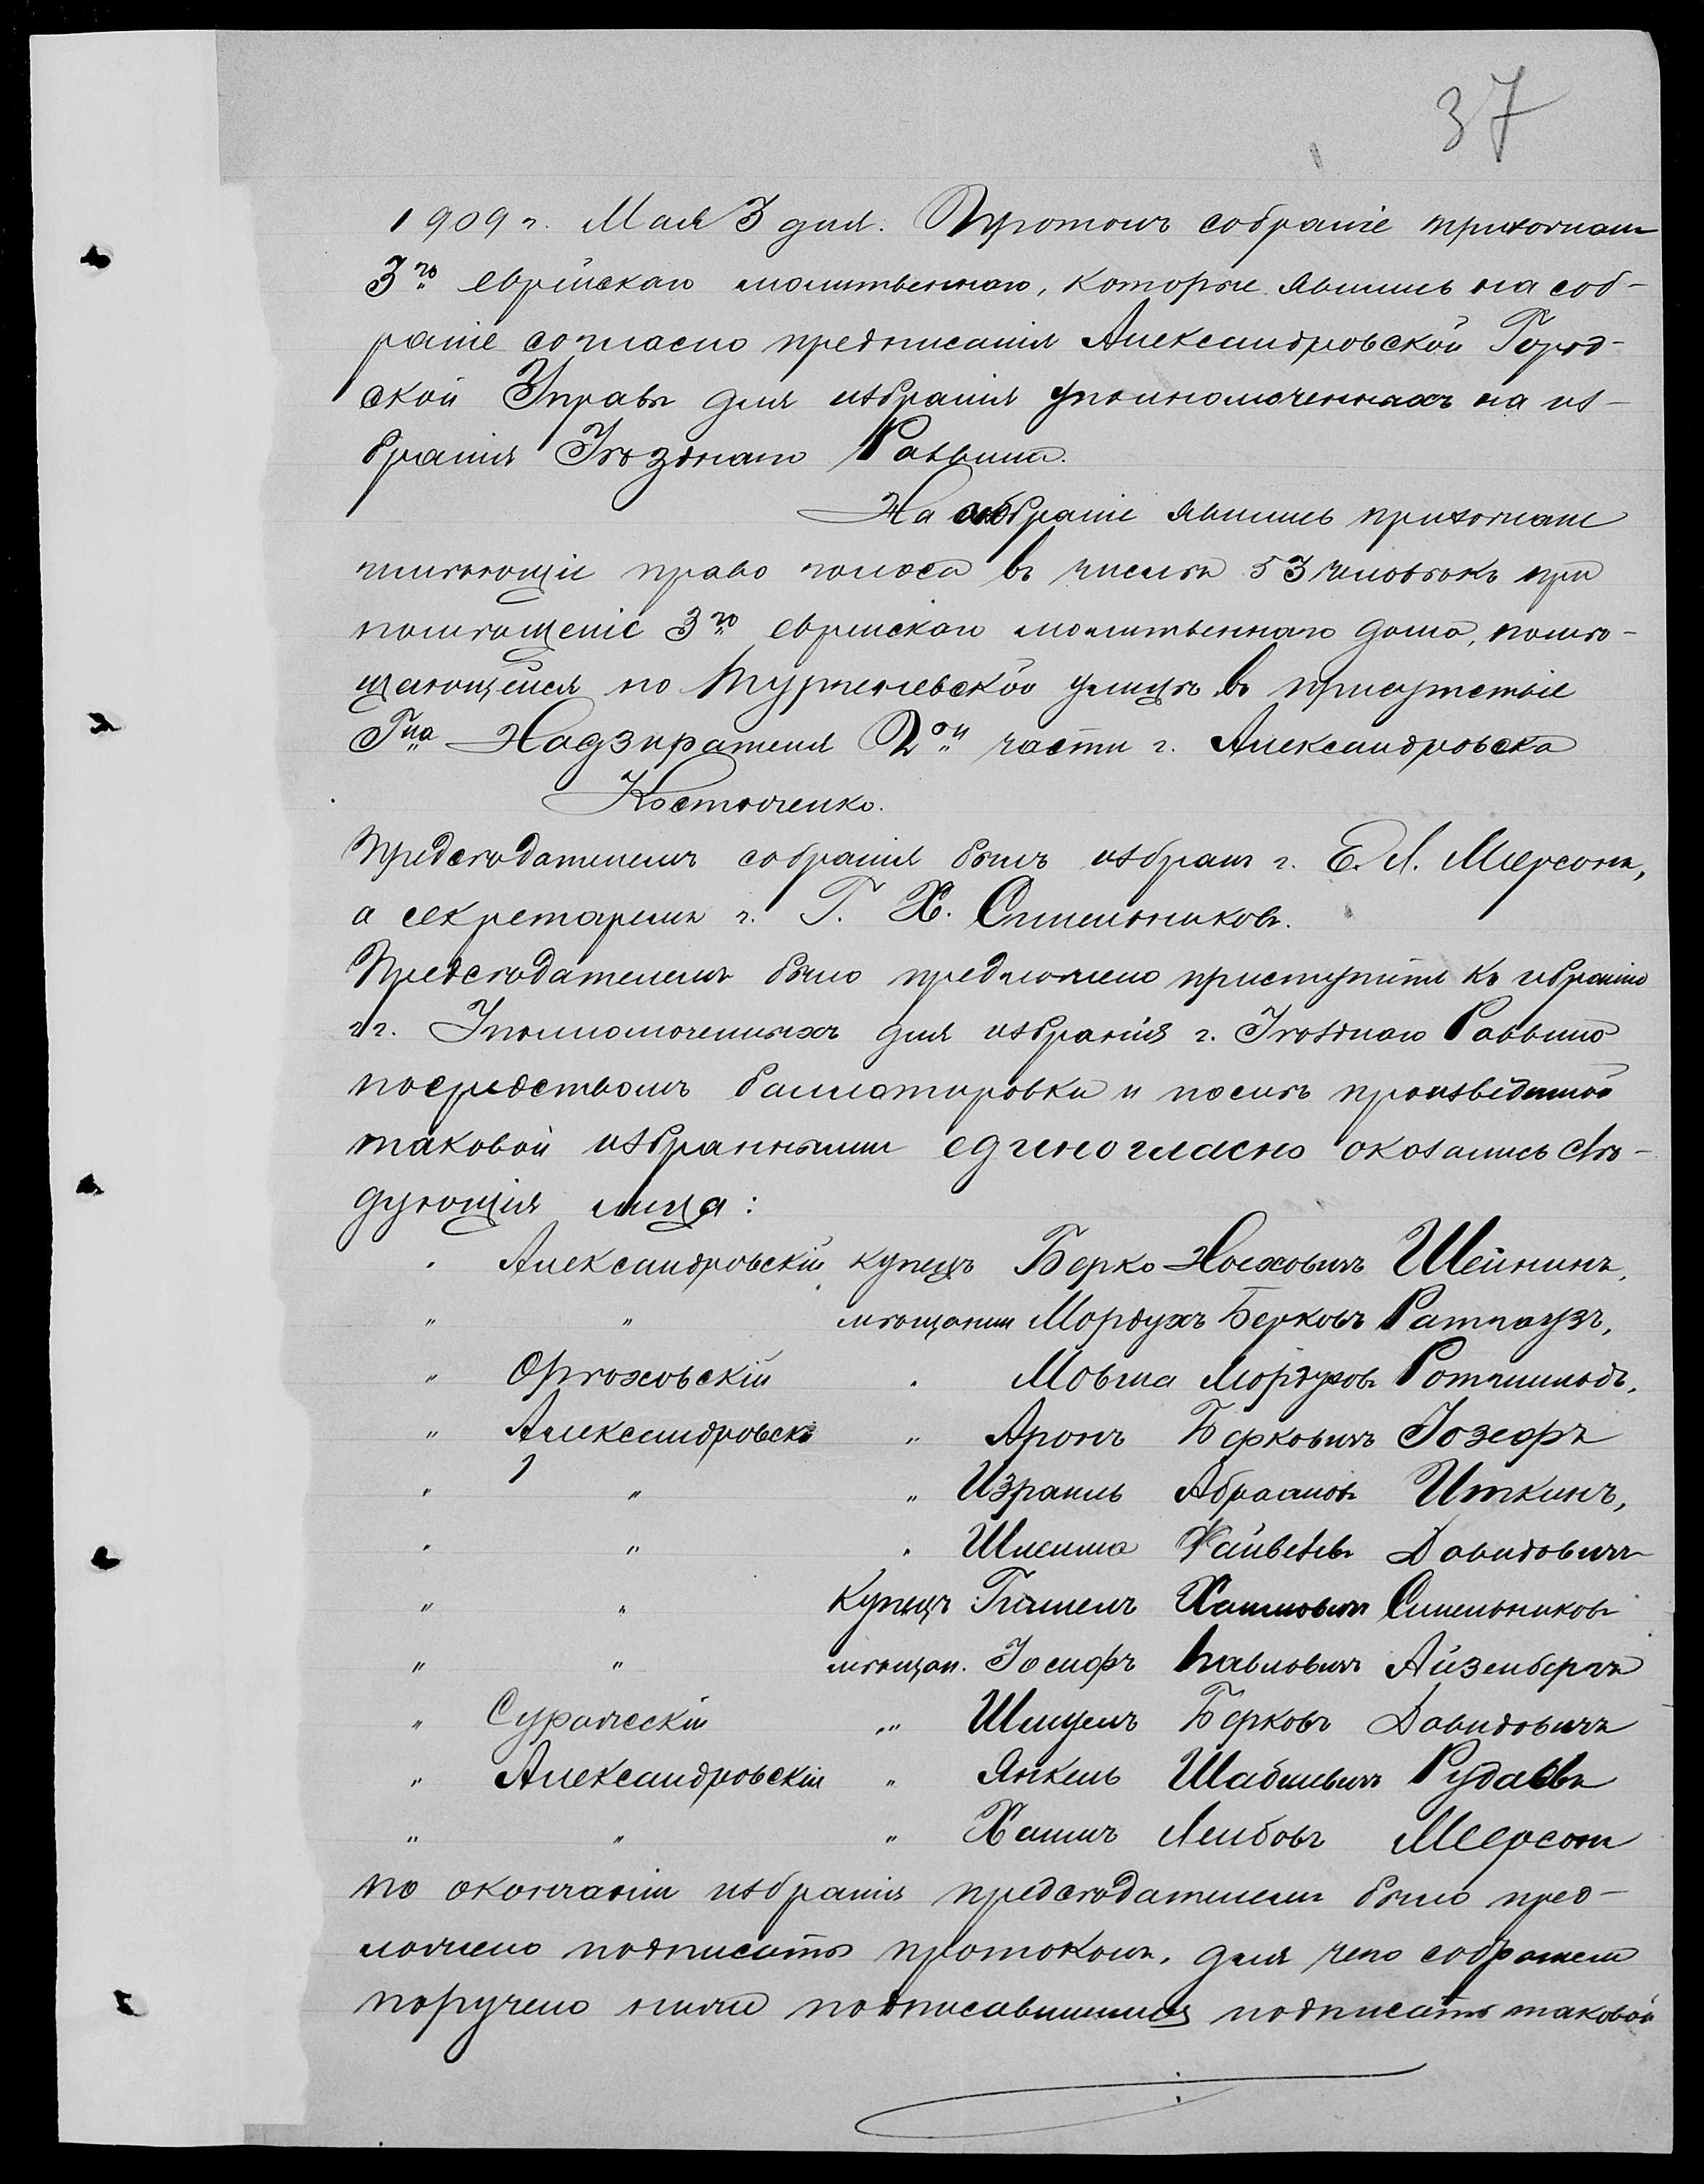 37
1909 г. Мая 3 дня. Протоколъ собраніе прихожанъ
3го еврейскаго молитвеннаго, которые явились на соб-
раніе согласно предписанія Александровской Город-
ской Управы для избранія уполномоченныхъ на из-
бранія Уѣзднаго Раввина.
На собраніе явились прихожане
имѣющіе право голоса въ числѣ 53 человѣкъ при
помѣщеніе 3го еврейскаго молитвеннаго дома, помѣ-
щающейся по Тургеневской улицѣ въ присутствіе
Гна Надзирателя 2ой части г. Александровска
Костюченко.
Предсѣдателемъ собранія былъ избранъ г. Е. Л. Меерсонъ,
а секретаремъ г. Г. Х. Синельниковъ.
Предсѣдателемъ было предложено приступить къ избранію
гг. Уполномоченныхъ для избранія г. Уѣзднаго Раввина
посредствомъ баллотировки и послѣ произведенной
таковой избранными единогласно оказались слѣ-
дующія лица:
" Александровскій купецъ Берко Носховичъ Шейнинъ,
" " мѣщанинъ Мордухъ Берковъ Ратгаузъ,
" Орѣховскій " Мовша Мордуховъ Ротшильдъ,
" Александровскій " Аронъ Берковичъ Іозефъ
" " " Израиль Абрамовъ Иткинъ,
" " " Шлема Файвелевъ Давидовичъ
" " Купецъ Гилель Хаимовичъ Синельниковъ
" " мѣщан. Іосифъ Павловичъ Айзенбергъ
" Суражскій " Шмуель Берковъ Давидовичъ
" Александровскій " Янкель Шабсиевичъ Рудаевъ
" " " Хаимъ Лейбовъ Меерсонъ
По окончаніи избранія предсѣдателемъ было пред-
ложено подписать протоколъ, для чего собраніемъ
поручено ниже подписавшимся подписать таковой